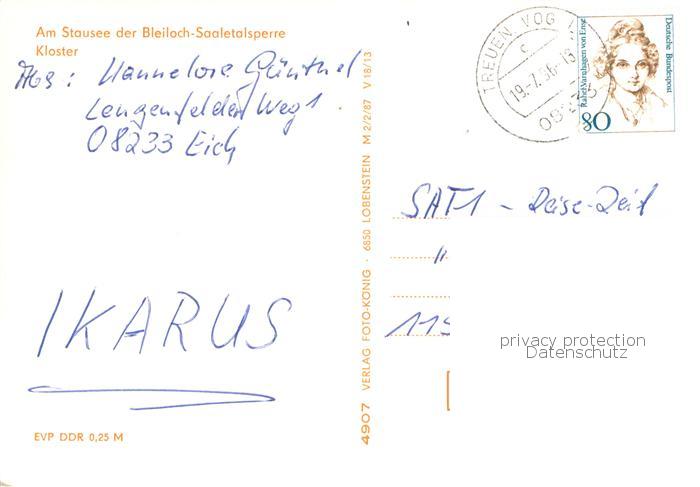 Am Stausee der Bleiloch-Saaletalsperre
Kloster
Abs: Hannelore Günthel
Lengenfelder Weg 1
08233 Eich
IKARUS
EVP DDR 0,25 M
4907 VERLAG FOTO-KÖNIG · 6850 LOBENSTEIN M 2/2/87 V 18/13
TREUEN, VOGTL
c
19.-7.96-18
08233
Rahel Varnhagen von Ense
Deutsche Bundespost
80
SAT1 - Reise-Zeit
"
115
privacy protection
Datenschutz